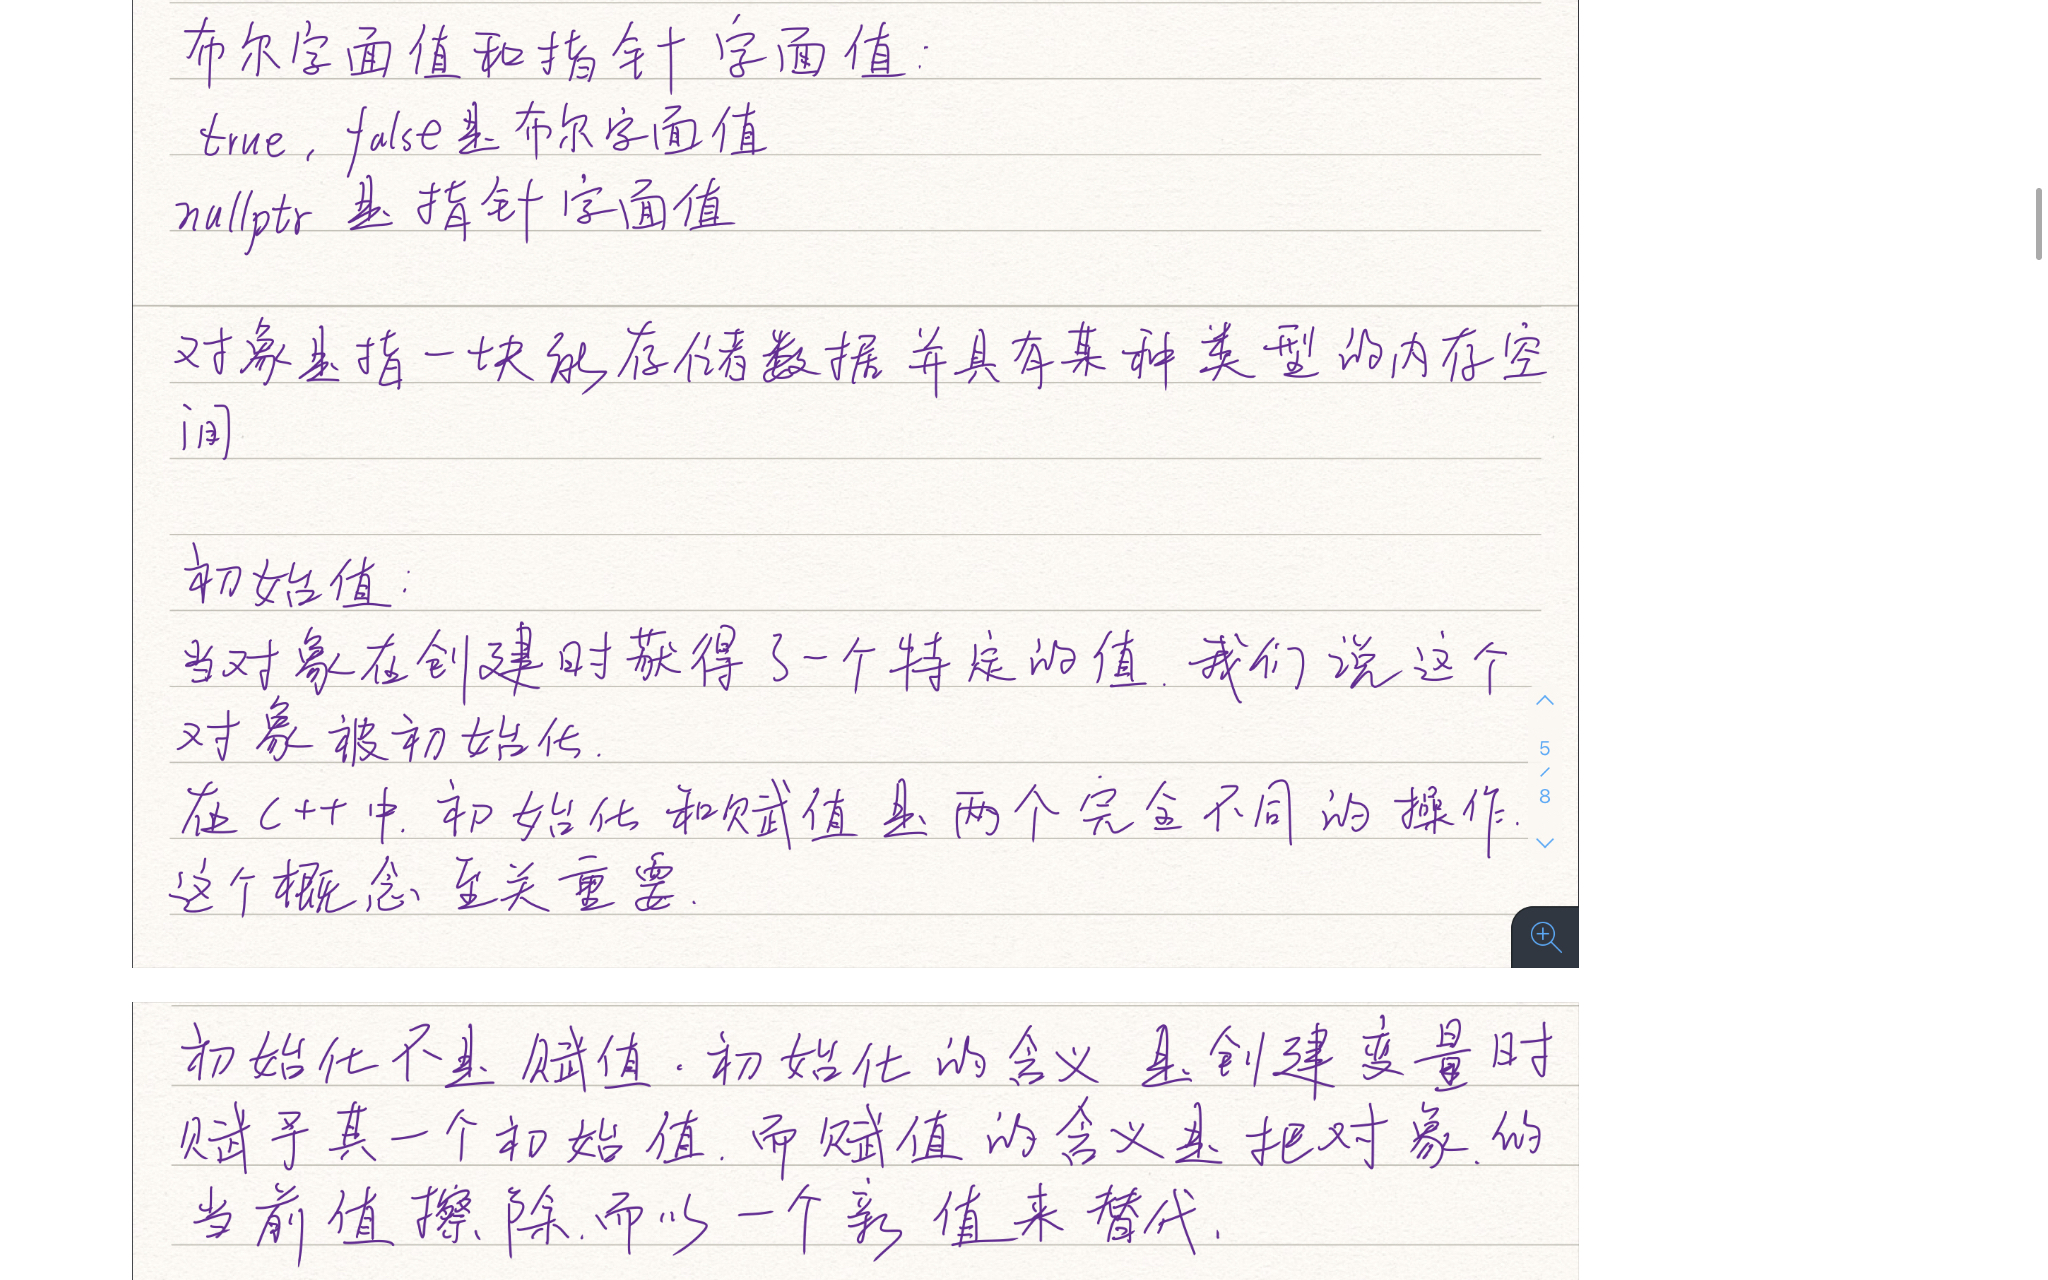 布尔字面值和指针字面值:
true, false是布尔字面值
nullptr 是指针字面值
对象是指一块能存储数据并具有某种类型的内存空
间
初始值:
当对象在创建时获得了一个特定的值. 我们说这个
对象被初始化.
在C++中. 初始化和赋值是两个完全不同的操作.
这个概念至关重要.
5
/
8
初始化不是赋值. 初始化的含义是创建变量时
赋予其一个初始值. 而赋值的含义是把对象的
当前值擦除.而以一个新值来替代.